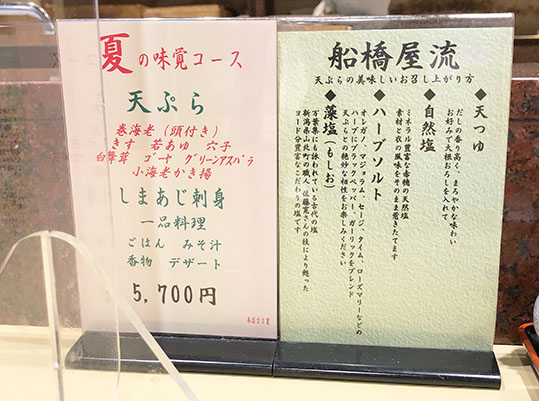 夏の味覚コース
天ぷら
巻海老(頭付き)
きす 若あゆ 穴子
白舞茸 ゴーヤ グリーンアスパラ
小海老かき揚
しまあじ刺身
一品料理
ごはん みそ汁
香物 デザート
5,700円
船橋屋流
天ぷらの美味しいお召し上がり方
◆天つゆ
だしの香り高く、まろやかな味わい
お好みで大根おろしを入れて
◆自然塩
ミネラル豊富な赤穂の天然塩
素材と衣の風味をそのまま惹きたてます
◆ハーブソルト
オレガノ、マジョラム、セージ、タイム、ローズマリーなどの
ハーブにブラックペッパー、ガーリックをブレンド
天ぷらとの絶妙な相性をお楽しみください
◆藻塩(もしお)
万葉集にも詠われている古代の塩
新潟県山北町の職人、佐藤寛さんの技により甦った
ヨード分豊富なこだわりの塩です